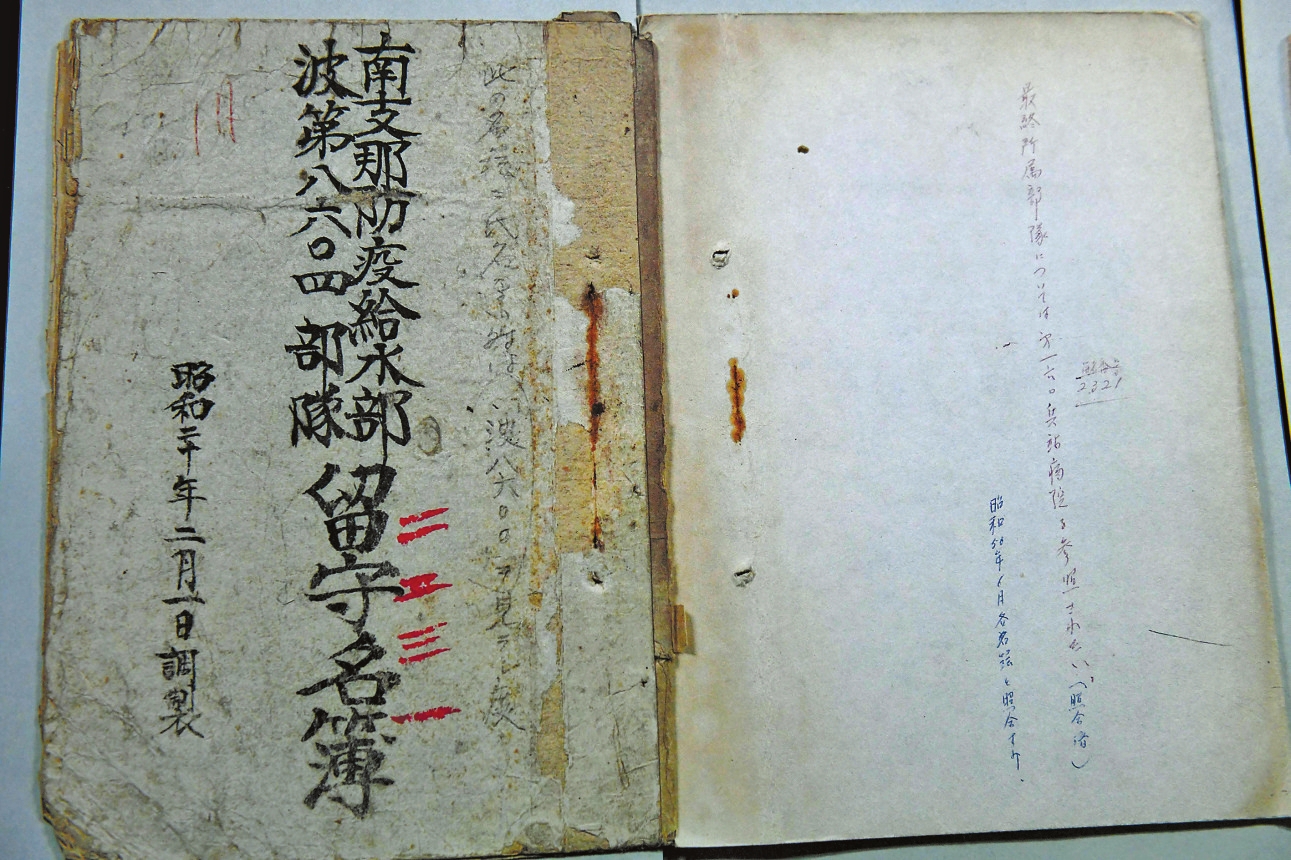 最終所属部隊については第一六〇兵站病院を参照されたい(照合済)
2321
昭和50年6月各名簿と照合すみ、
此の名簿ニ氏名
波八六〇〇ヲ見ラレ度
南支那防疫給水部
波第八六〇四部隊
留守名簿
二二三一
昭和二十年二月一日調製